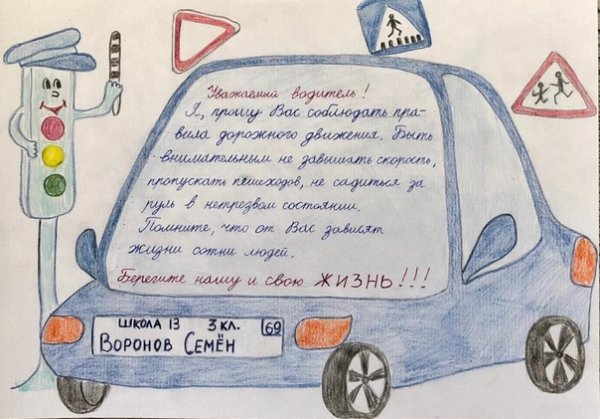 Уважаемый водитель!
Я, прошу Вас соблюдать пра-
вила дорожного движения. Быть
внимательным не завышать скорость,
пропускать пешеходов, не садиться за
руль в нетрезвом состоянии.
Помните, что от Вас зависят
жизни сотни людей.
Берегите нашу и свою ЖИЗНЬ!!!
ШКОЛА 13 3 КЛ. 69
ВОРОНОВ СЕМЁН